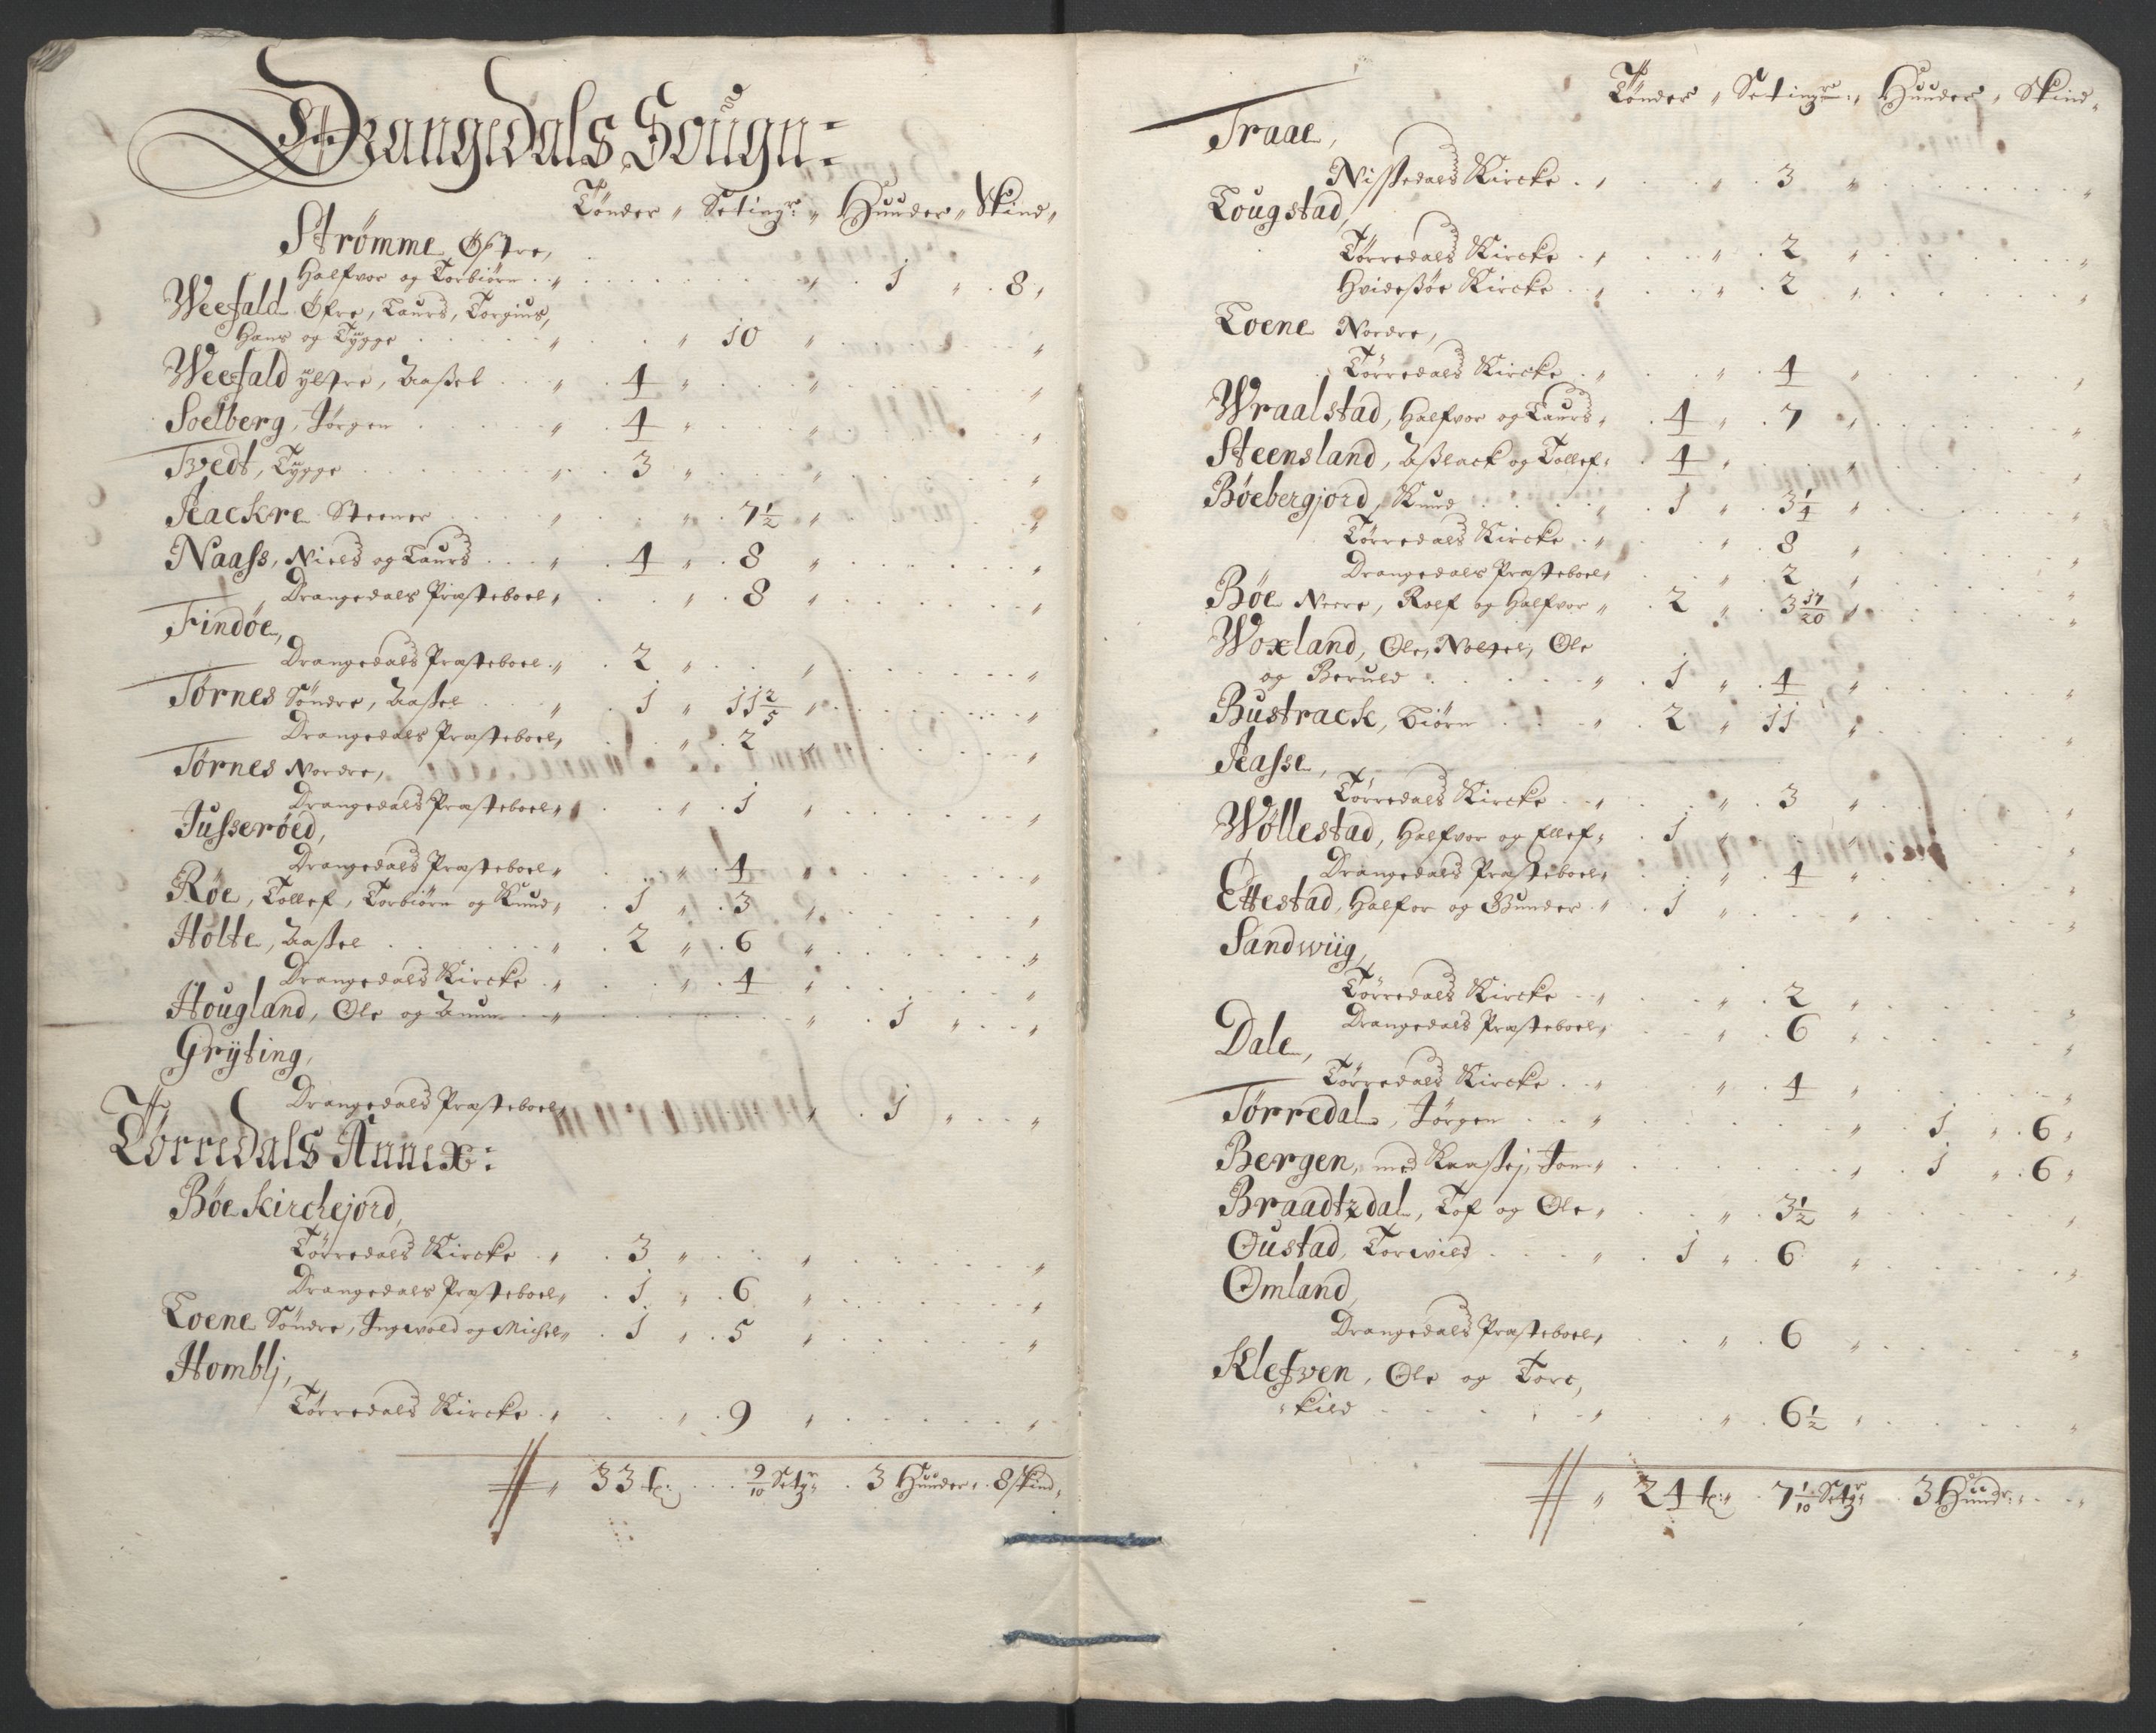 Drangedals Sougn:
Tønder „ Setingr: „ Huuder „ Skind „
Strømme Østre,
Halfvor og Torbiørn „ „ 1 „ 8 „
Weefald Øfre, Laurs, Torgius,
Hans og Tÿgge „ „ 10 „ „
Weefald ÿtre, Aassel „ 4 „ „ „
Soelberg, Jørgen „ 4 „ „ „
Tvedt, Tÿgge „ 3 „ „ „
Aackre Steener „ „ 7 1/2 „ „
Naass, Niels og Laurs „ 4 „ 8 „ „
Drangedals Præsteboel „ „ 8 „ „
Findøe,
Drangedals Præsteboel „ 2 „ „ „
Tørnes Søndre, Aassel „ 1 „ 11 2/5 „ „
Drangedals Præsteboel „ „ 2 „ „
Tørnes Nordre,
Drangedals Præsteboel „ „ 1 „ „
Jusserøed,
Drangedals Præsteboel „ „ 4 „ „
Røe, Tollef, Torbiørn og Knud „ 1 „ 3 „ „
Holte, Aassel „ 2 „ 6 „ „
Drangedals Kircke „ „ 4 „ „
Hougland, Ole og „ „ 1 „ „
Grÿting,
Drangedals Præsteboel „ „ 1 „ „
Tørredals Annex:
Bøe Kirckejord,
Tørredals Kircke „ 3 „ „ „
Drangedals Præsteboel „ 1 „ 6 „ „
Loene Søndre, Ingwold og Michel „ 1 „ 5 „ „
Homblj,
Tørredals Kircke „ „ 9 „ „
„ 33 t: 9/10 Setgr „ 3 Huuder „ 8 skind „
Tønder „ Setingr: „ Huuder „ Skind „
Traae,
Nissedals Kircke „ „ 3 „ „
Lougstad,
Tørredals Kircke „ „ 2 „ „
Hvidessøe Kircke „ „ 2 „ „
Loene Nordre,
Tørredals Kircke „ „ 4 „ „
Wraalstad, Halfvor og Laurs „ 4 „ 7 „ „
Steensland, Asslack og Tollef „ 4 „ „ „
Bøebergjord, Knud „ 1 „ 3 1/4 „ „
Tørredals Kircke „ „ 8 „ „
Drangedals Præsteboel „ „ 2 „ „
Bøe Neere, Rolf og Halfvor „ 2 „ 3 17/20 „ „
Woxland, Ole, Ole
og Beruld „ 1 „ 4 „ „
Bustrack, Biørn „ 2 „ 11 „ „
Aasse,
Tørredals Kircke „ „ 3 „ „
Wøllestad, Halfvor og Ellef „ 1 „ „ „
Drangedals Præsteboel „ „ 4 „ „
Ettestad, Halfor og Gunder „ 1 „ „ „
Sandwiig,
Tørredals Kircke „ „ 2 „ „
Drangedals Præsteboel „ „ 6 „ „
Dale,
Tørredals Kircke „ „ 4 „ „
Tørredal, Jørgen „ „ 1 „ 6 „
Bergen, med Jon „ „ 1 „ 6 „
Braadtzdal, Tof og Ole „ „ 3 1/2 „ „
Oustad, Torwild „ 1 „ 6 „ „
Omland,
Drangedals Præsteboel „ „ 6 „ „
Klefven, Ole og Torc,
„ kild „ „ 6 1/2 „ „
„ 24 t: „ 7 1/10 Setgr „ 3 Huudr: „ „